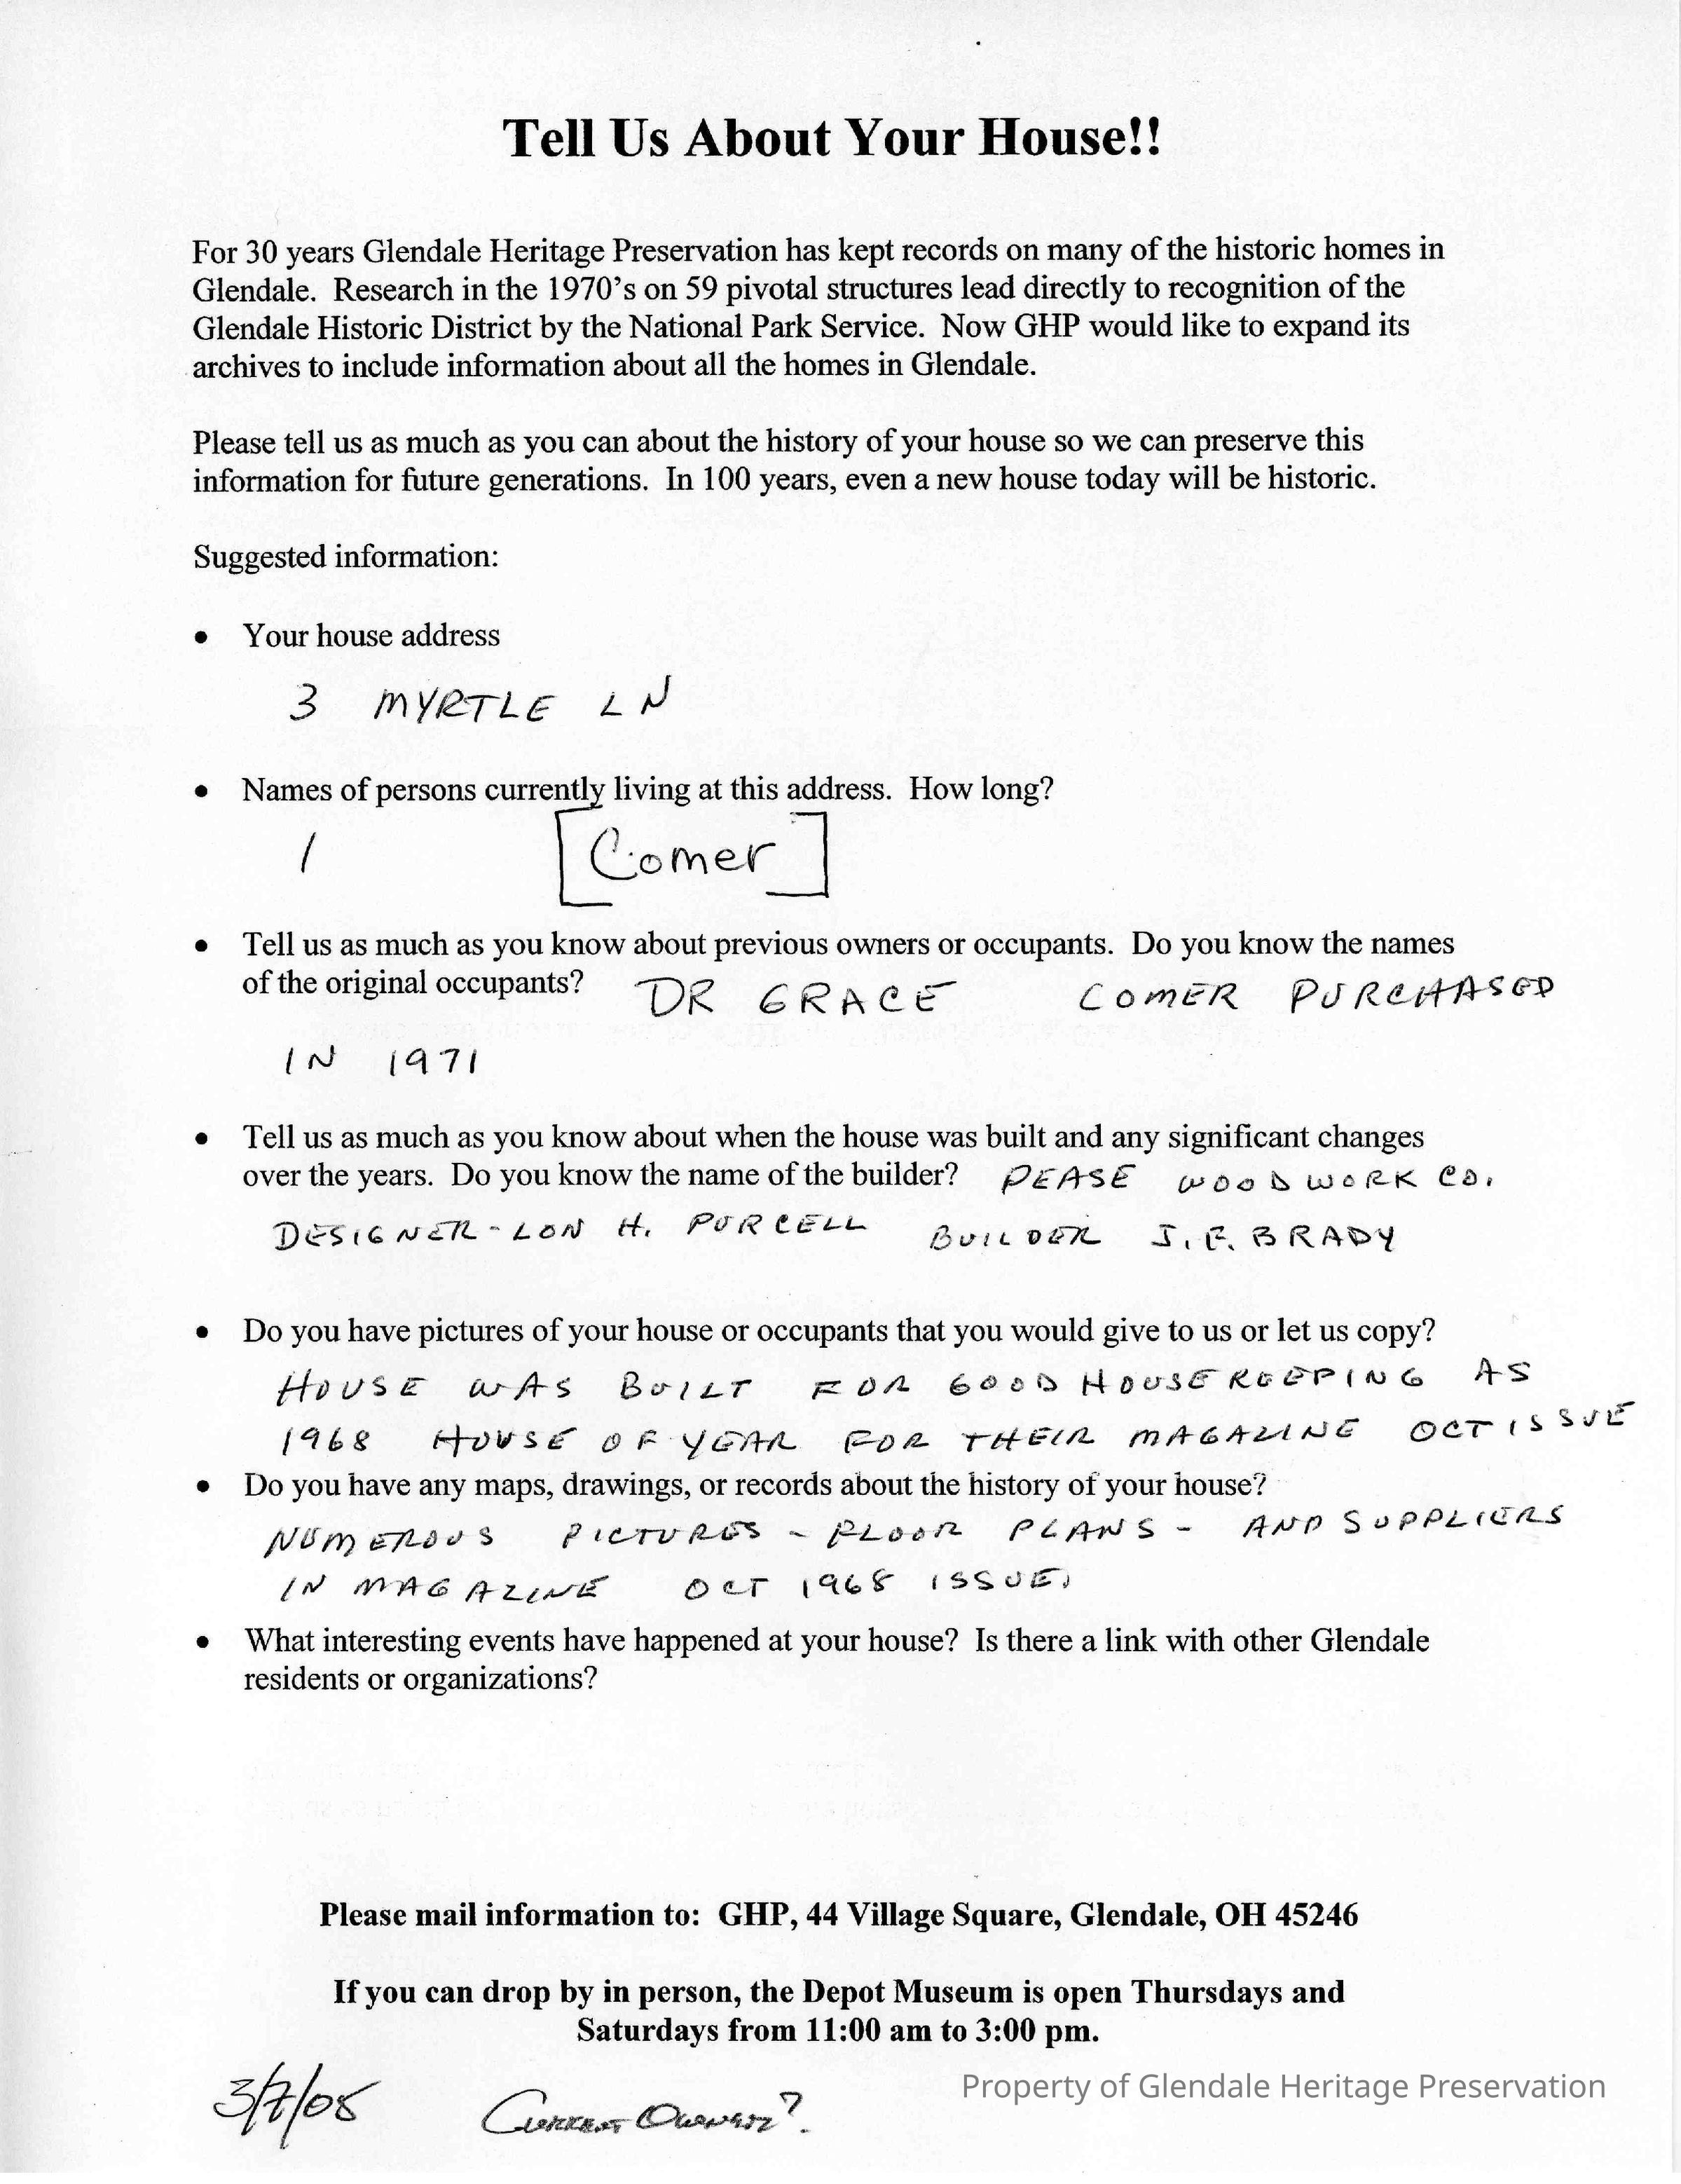 Tell Us About Your House!!
For 30 years Glendale Heritage Preservation has kept records on many of the historic homes in
Glendale. Research in the 1970's on 59 pivotal structures lead directly to recognition of the
Glendale Historic District by the National Park Service. Now GHP would like to expand its
archives to include information about all the homes in Glendale.
Please tell us as much as you can about the history of your house so we can preserve this
information for future generations. In 100 years, even a new house today will be historic.
Suggested information:
• Your house address
3 MYRTLE LN
• Names of persons currently living at this address. How long?
1 [Comer]
• Tell us as much as you know about previous owners or occupants. Do you know the names
of the original occupants? DR GRACE COMER PURCHASED
IN 1971
• Tell us as much as you know about when the house was built and any significant changes
over the years. Do you know the name of the builder? PEASE WOODWORK CO.
DESIGNER - LON H. PURCELL BUILDER J. F. BRADY
• Do you have pictures of your house or occupants that you would give to us or let us copy?
HOUSE WAS BUILT FOR GOOD HOUSEKEEPING AS
1968 HOUSE OF YEAR FOR THEIR MAGAZINE OCT ISSUE
• Do you have any maps, drawings, or records about the history of your house?
NUMEROUS PICTURES - FLOOR PLANS - AND SUPPLIERS
IN MAGAZINE OCT 1968 ISSUE.
• What interesting events have happened at your house? Is there a link with other Glendale
residents or organizations?
Please mail information to: GHP, 44 Village Square, Glendale, OH 45246
If you can drop by in person, the Depot Museum is open Thursdays and
Saturdays from 11:00 am to 3:00 pm.
Property of Glendale Heritage Preservation
3/7/05 Current Owners?